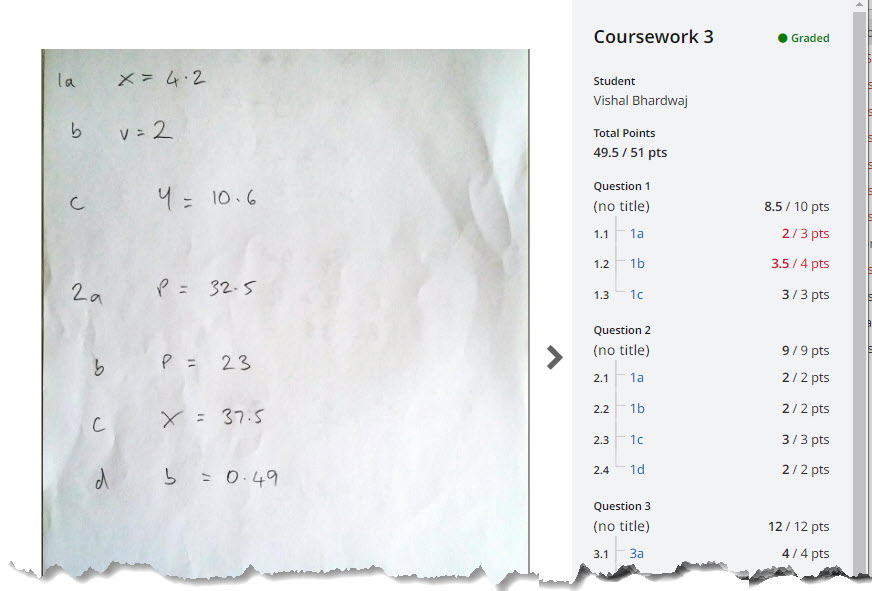 1a x = 4.2
b v = 2
c y = 10.6
2a P = 32.5
b P = 23
c x = 37.5
d b = 0.49
Coursework 3
Graded
Student
Vishal Bhardwaj
Total Points
49.5 / 51 pts
Question 1
(no title) 8.5 / 10 pts
1.1 1a 2 / 3 pts
1.2 1b 3.5 / 4 pts
1.3 1c 3 / 3 pts
Question 2
(no title) 9 / 9 pts
2.1 1a 2 / 2 pts
2.2 1b 2 / 2 pts
2.3 1c 3 / 3 pts
2.4 1d 2 / 2 pts
Question 3
(no title) 12 / 12 pts
3.1 3a 4 / 4 pts